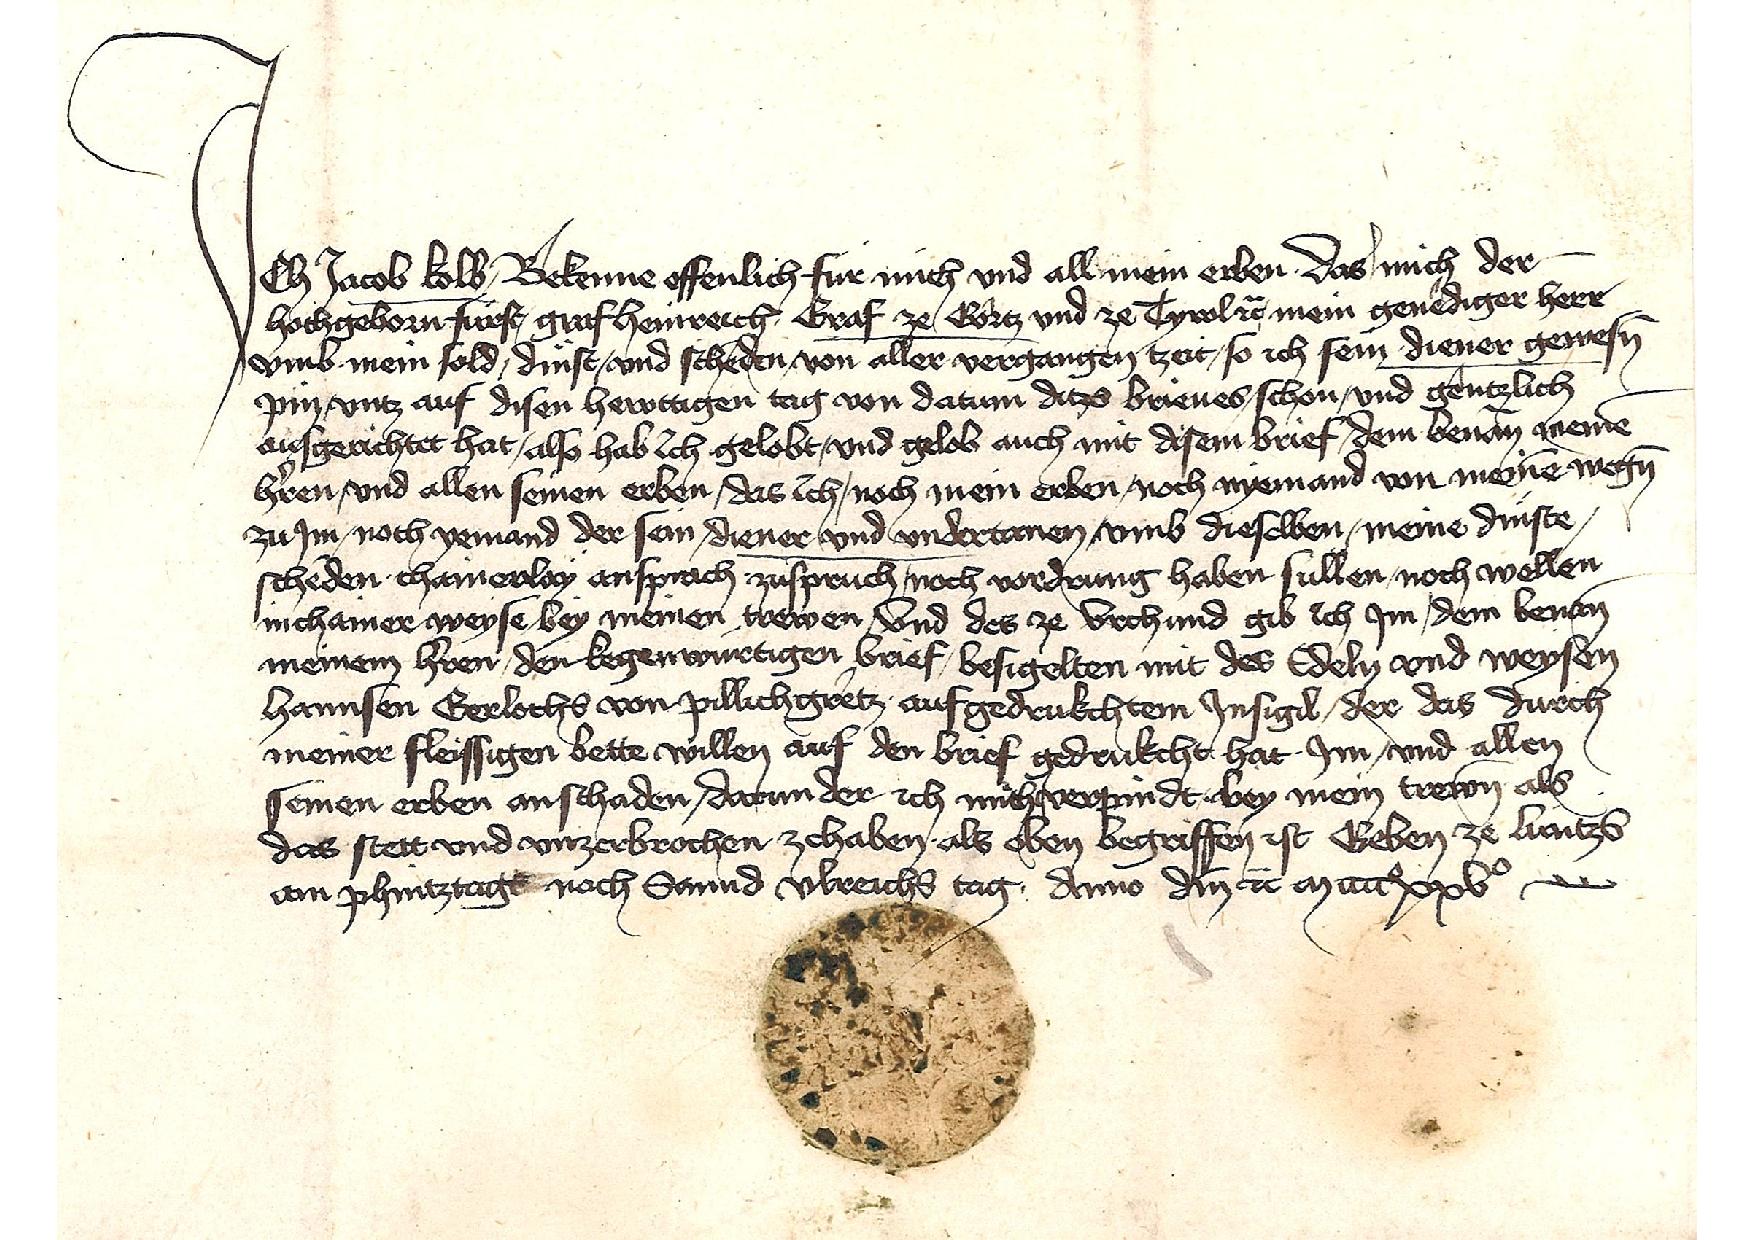 ICh Jacob kolb Bekenne offenlich fur mich vnd all mein erben Das mich der
hochgeborn furst graf heinreich Graf ze Görtz vnd ze Tyrol mein genediger herr
vmb mein sold / dinst / vnd scheden von aller vergangen tzeit / so ich sein diener gewesñ
pin / vntz auf disen hewttigen tag von datum ditzs brieues / schon / vnd gentzlich
ausgerichtet hat / also hab ich gelobt / vnd gelob auch mit disem brief / dem benañ meinē
h'ren / vnd allen seinen erben / das ich / noch mein erben / noch nyemand von meinē wegñ
zu Im / noch yemand der sein / diener vnd vndertanen / vmb dieselben / meine dinste /
scheden chainerlay ansprach zuspruch / noch vordrung haben sullen / noch wellen
inchainer weyse bey meinen trewen / Vnd des ze vrchund gib ich Im / dem benañ
meinem h'ren / den kegenwürtigen brief / besigelten mit des Edeln vnd weysen
hannsen Gerlochs von pillichgretz aufgedrukchtem Insigil / der das durch
meiner fleissigen bette willen auf den brief gedrukcht hat Im / vnd allen
seinen erben an schaden / darunder ich mich verpindt bey mein trewñ als
das stett vnd vnzerbrochen zehaben als oben begriffen ist Geben ze Luntzs
am phintztag nach Sannd vlreichs tag Anno dñi mccccxxv°